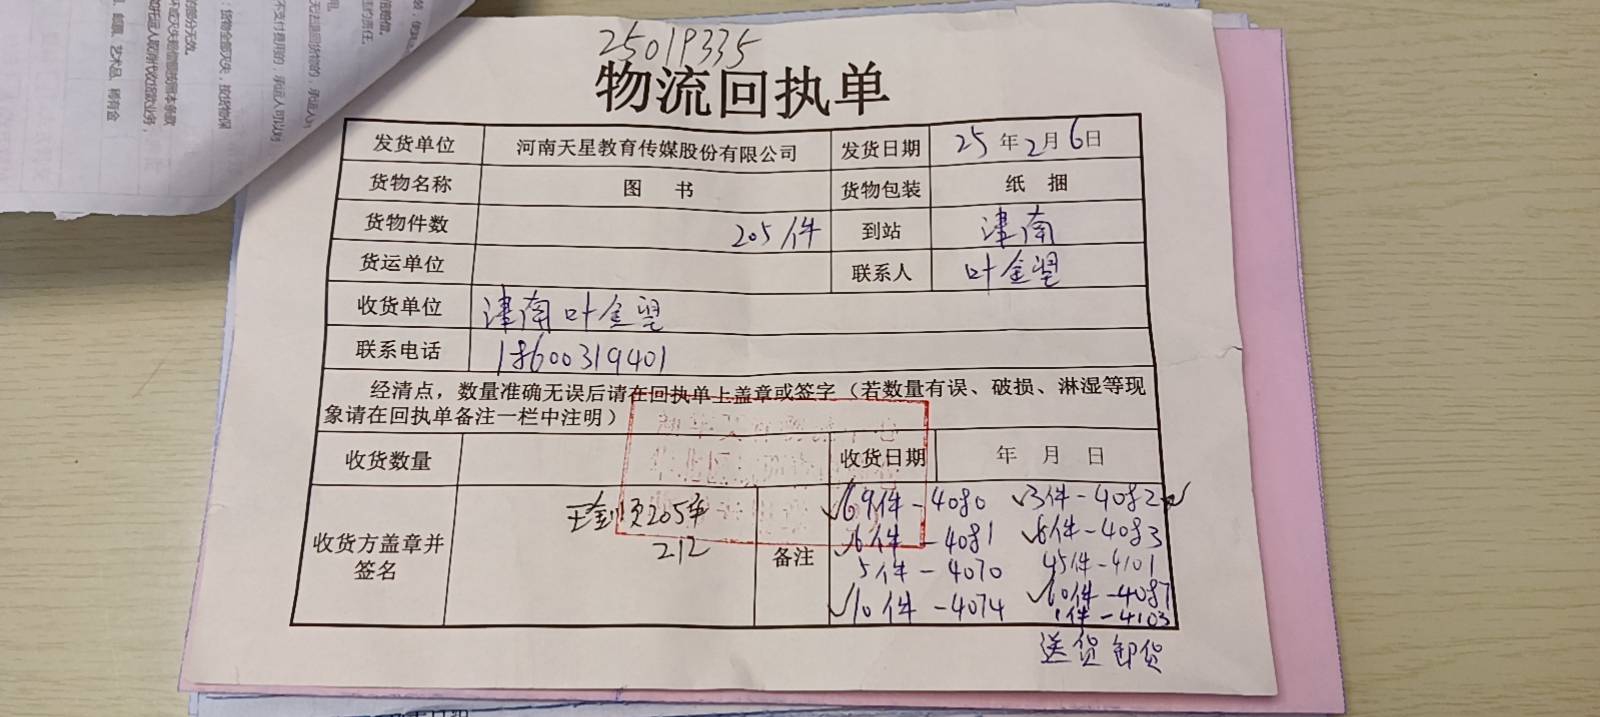 25019335
物流回执单
发货单位 河南天星教育传媒股份有限公司 发货日期 25年2月6日
货物名称 图 书 货物包装 纸 捆
货物件数 205件 到站 津南
货运单位 联系人 叶金望
收货单位 津南叶金望
联系电话 18600319401
经清点，数量准确无误后请在回执单上盖章或签字（若数量有误、破损、淋湿等现
象请在回执单备注一栏中注明）
收货数量 收货日期 年 月 日
收货方盖章并
签名
205件
212
备注
69件-4080 3件-4082
6件-4081 6件-4083
5件-4070 45件-4101
10件-4074 60件-4087
1件-4103
送货卸货